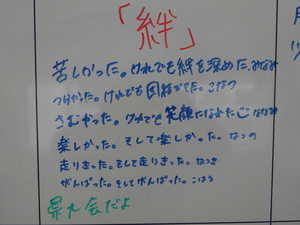 「絆」
苦しかった。けれども絆を深めた。みなみ
つかった。けれども団結ができた。こなつ
さむかった。けれども笑顔になれた。ななみ
楽しかった。そして楽しかった。なつの
走りきった。そして走りきった。なつき
がんばった。そしてがんばった。こはる
昇九会だよ